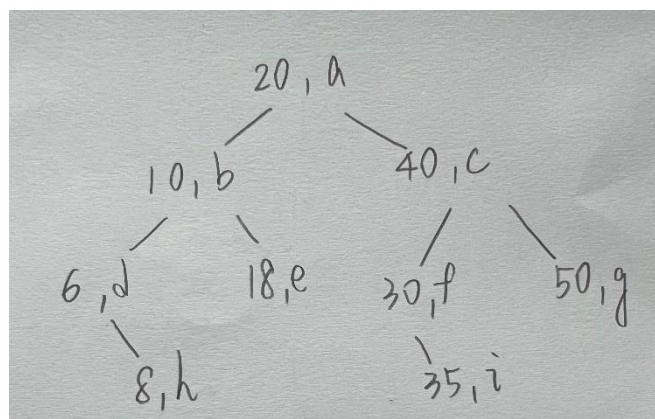 20, a
10, b 40, c
6, d 18, e 30, f 50, g
8, h 35, i